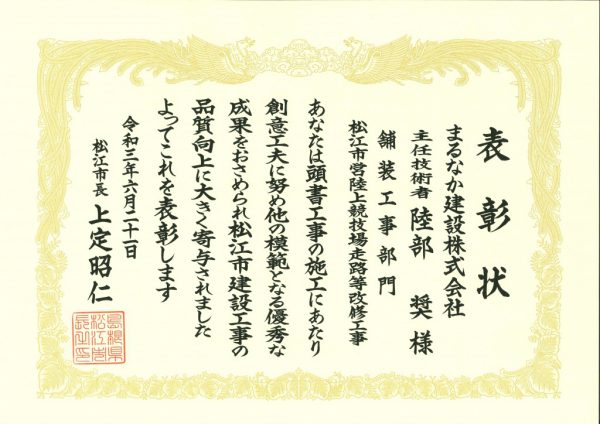 表彰状
まるなか建設株式会社
主任技術者 陸部 奨 様
舗装工事部門
松江市営陸上競技場走路等改修工事
あなたは頭書工事の施工にあたり
創意工夫に努め他の模範となる優秀な
成果をおさめられ松江市建設工事の
品質向上に大きく寄与されました
よってこれを表彰します
令和三年六月二十一日
松江市長 上定昭仁
島根県
松江市
長之印